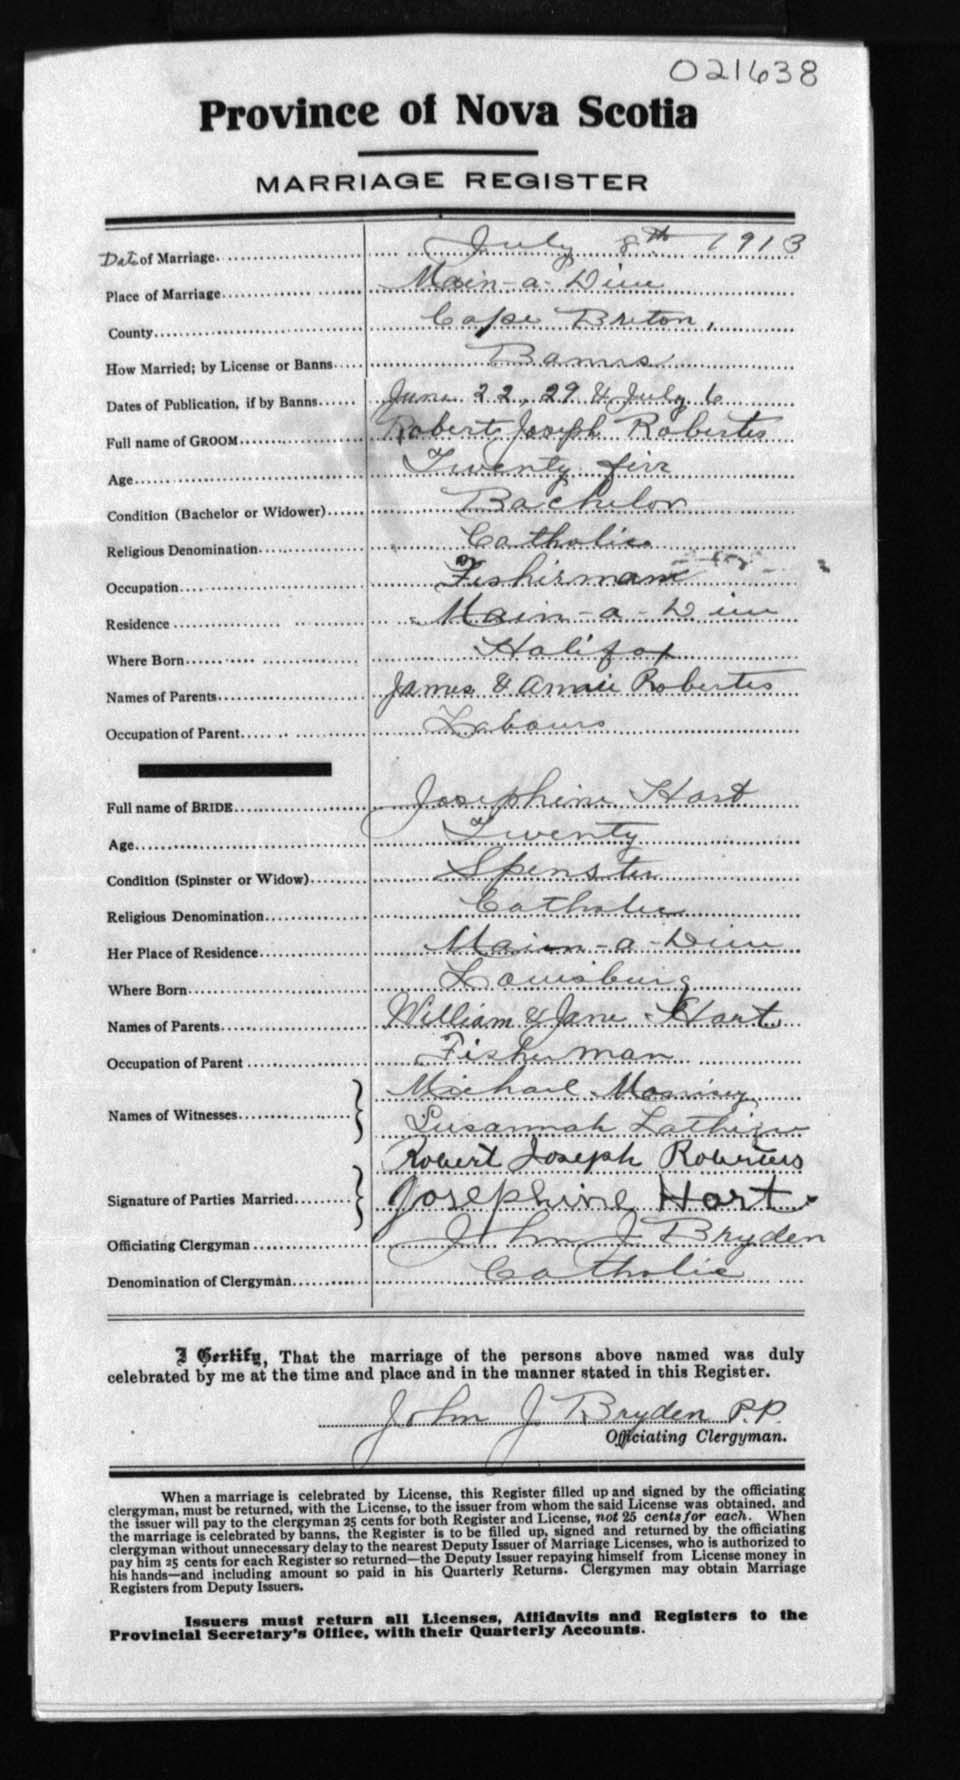 021638
Province of Nova Scotia
MARRIAGE REGISTER
Date of Marriage July 8th 1913
Place of Marriage Main-a-Dieu
County Cape Breton,
How Married; by License or Banns Banns
Dates of Publication, if by Banns June 22, 29 & July 6
Full name of GROOM Robert Joseph Roberts
Age Twenty
Condition (Bachelor or Widower) Bachelor
Religious Denomination Catholic
Occupation Fisherman
Residence Main-a-Dieu
Where Born Halifax
Names of Parents James & Annie Roberts
Occupation of Parent
Full name of BRIDE Josephine Hart
Age Twenty
Condition (Spinster or Widow) Spinster
Religious Denomination Catholic
Her Place of Residence Main-a-Dieu
Where Born Louisburg
Names of Parents William & Jane Hart
Occupation of Parent Fisherman
Names of Witnesses Michael
Susannah
Robert Joseph Roberts
Signature of Parties Married Josephine Hart
Officiating Clergyman John J Bryden
Denomination of Clergyman Catholic
I Certify, That the marriage of the persons above named was duly
celebrated by me at the time and place and in the manner stated in this Register.
John J Bryden P.P.
Officiating Clergyman.
When a marriage is celebrated by License, this Register filled up and signed by the officiating
clergyman, must be returned, with the License, to the issuer from whom the said License was obtained, and
the issuer will pay to the clergyman 25 cents for both Register and License, not 25 cents for each. When
the marriage is celebrated by banns, the Register is to be filled up, signed and returned by the officiating
clergyman without unnecessary delay to the nearest Deputy Issuer of Marriage Licenses, who is authorized to
pay him 25 cents for each Register so returned—the Deputy Issuer repaying himself from License money in
his hands—and including amount so paid in his Quarterly Returns. Clergymen may obtain Marriage
Registers from Deputy Issuers.
Issuers must return all Licenses, Affidavits and Registers to the
Provincial Secretary's Office, with their Quarterly Accounts.